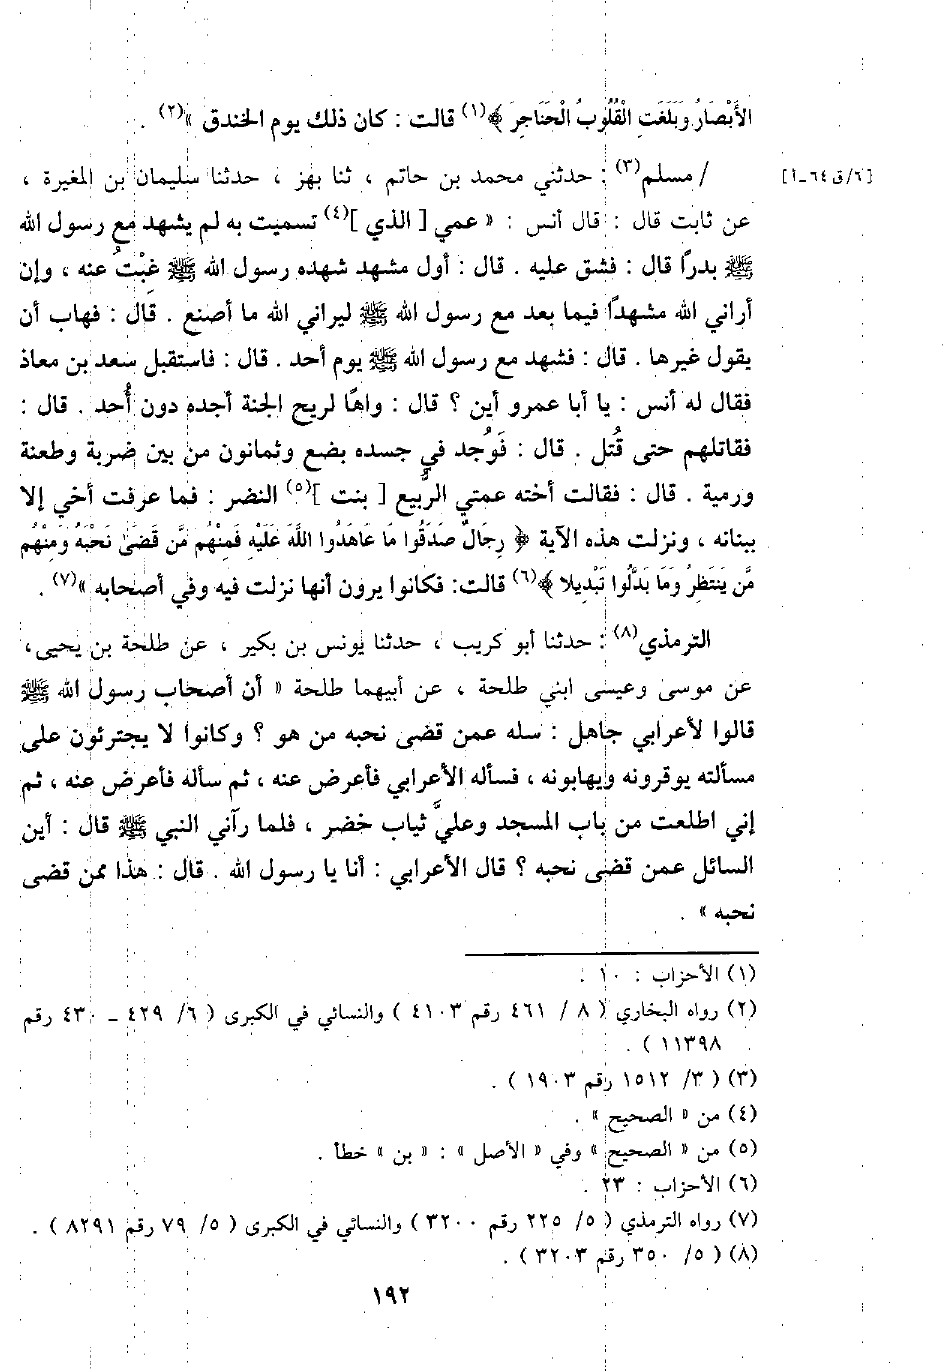 الأَبْصَارُ وَبَلَغَتِ الْقُلُوبُ الْحَنَاجِرَ ﴾(١) قالت : كان ذلك يوم الخندق »(٢) .
[٦/ق٦٤-أ]
/ مسلم(٣) : حدثني محمد بن حاتم ، ثنا بهز ، حدثنا سليمان بن المغيرة ،
عن ثابت قال : قال أنس : « عمي [ الذي ](٤) تسميت به لم يشهد مع رسول الله
ﷺ بدرًا قال : فشق عليه . قال : أول مشهد شهده رسول الله ﷺ غِبْتُ عنه ، وإن
أراني الله مشهدًا فيما بعد مع رسول الله ﷺ ليراني الله ما أصنع . قال : فهاب أن
يقول غيرها . قال : فشهد مع رسول الله ﷺ يوم أحد . قال : فاستقبل سعد بن معاذ
فقال له أنس : يا أبا عمرو أين ؟ قال : واهًا لريح الجنة أجده دون أُحد . قال :
فقاتلهم حتى قُتل . قال : فَوُجد في جسده بضع وثمانون من بين ضربة وطعنة
ورمية . قال : فقالت أخته عمتي الرُّبيع [ بنت ](٥) النضر : فما عرفت أخي إلا
ببنانه ، ونزلت هذه الآية ﴿ رِجَالٌ صَدَقُوا مَا عَاهَدُوا اللَّهَ عَلَيْهِ فَمِنْهُم مَّن قَضَىٰ نَحْبَهُ وَمِنْهُم
مَّن يَنتَظِرُ وَمَا بَدَّلُوا تَبْدِيلا ﴾(٦) قالت: فكانوا يرون أنها نزلت فيه وفي أصحابه »(٧) .
الترمذي(٨) : حدثنا أبو كريب ، حدثنا يونس بن بكير ، عن طلحة بن يحيى،
عن موسى وعيسى ابني طلحة ، عن أبيهما طلحة « أن أصحاب رسول الله ﷺ
قالوا لأعرابي جاهل : سله عمن قضى نحبه من هو ؟ وكانوا لا يجترئون على
مسألته يوقرونه ويهابونه ، فسأله الأعرابي فأعرض عنه ، ثم سأله فأعرض عنه ، ثم
إني اطلعت من باب المسجد وعليَّ ثياب خضر ، فلما رآني النبي ﷺ قال : أين
السائل عمن قضى نحبه ؟ قال الأعرابي : أنا يا رسول الله . قال : هذا ممن قضى
نحبه » .
(١) الأحزاب : ١٠ .
(٢) رواه البخاري ( ٨ / ٤٦١ رقم ٤١٠٣ ) والنسائي في الكبرى ( ٦/ ٤٢٩ ـ ٤٣٠ رقم
١١٣٩٨ ) .
(٣) ( ٣/ ١٥١٢ رقم ١٩٠٣ ) .
(٤) من « الصحيح » .
(٥) من « الصحيح » وفي « الأصل » : « بن » خطأ .
(٦) الأحزاب : ٢٣ .
(٧) رواه الترمذي ( ٥/ ٢٢٥ رقم ٣٢٠٠ ) والنسائي في الكبرى ( ٥/ ٧٩ رقم ٨٢٩١ ) .
(٨) ( ٥/ ٣٥٠ رقم ٣٢٠٣ ) .
١٩٢